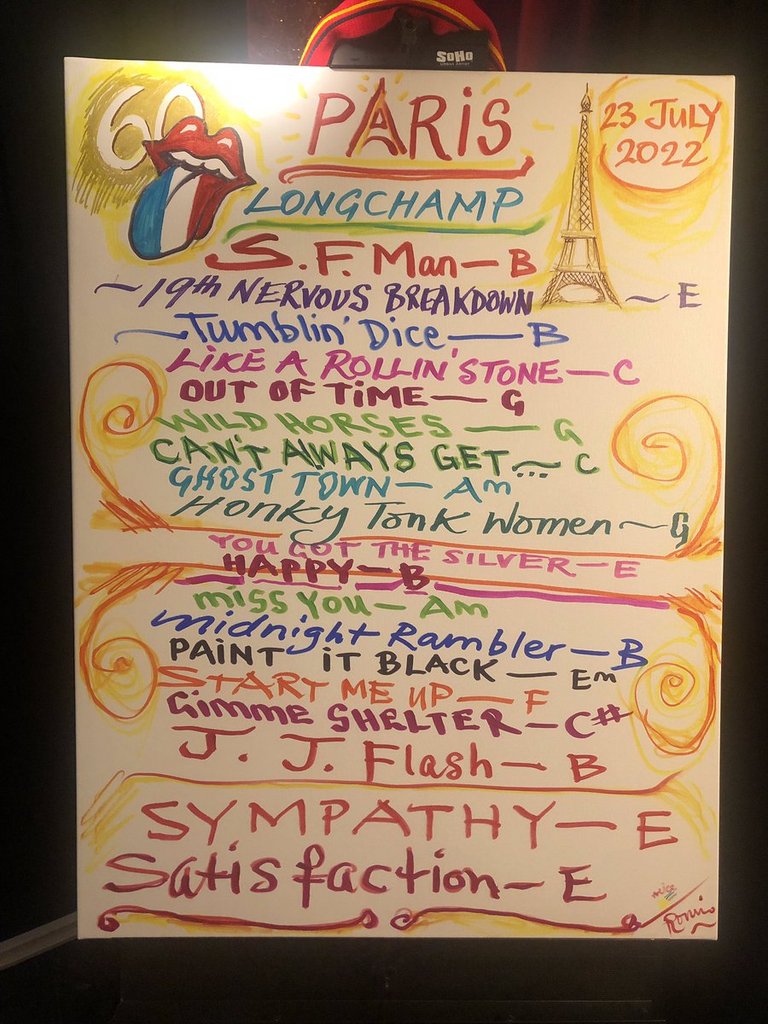 SoHo
60
PARIS
23 JULY
2022
LONGCHAMP
S.F. Man — B
~19th NERVOUS BREAKDOWN ~ E
~Tumblin' Dice — B
LIKE A ROLLIN' STONE — C
OUT OF TIME — G
WILD HORSES — G
CAN'T AWAYS GET~... C
GHOST TOWN — Am
HONKY TONK WOMEN ~ G
YOU GOT THE SILVER — E
HAPPY — B
MISS YOU — Am
Midnight Rambler — B
PAINT IT BLACK — Em
START ME UP — F
GIMME SHELTER — C#
J. J. Flash — B
SYMPATHY — E
Satisfaction — E
Ronnie